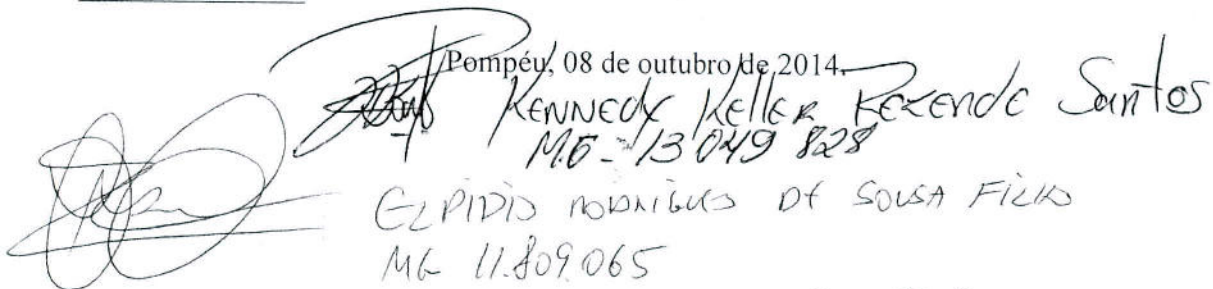 Pompéu, 08 de outubro de 2014.
KENNEDY KELLER REZENDE Santos
MG - 13 049 828
ELPIDIO RODRIGUES DE SOUSA FILHO
MG 11.809.065